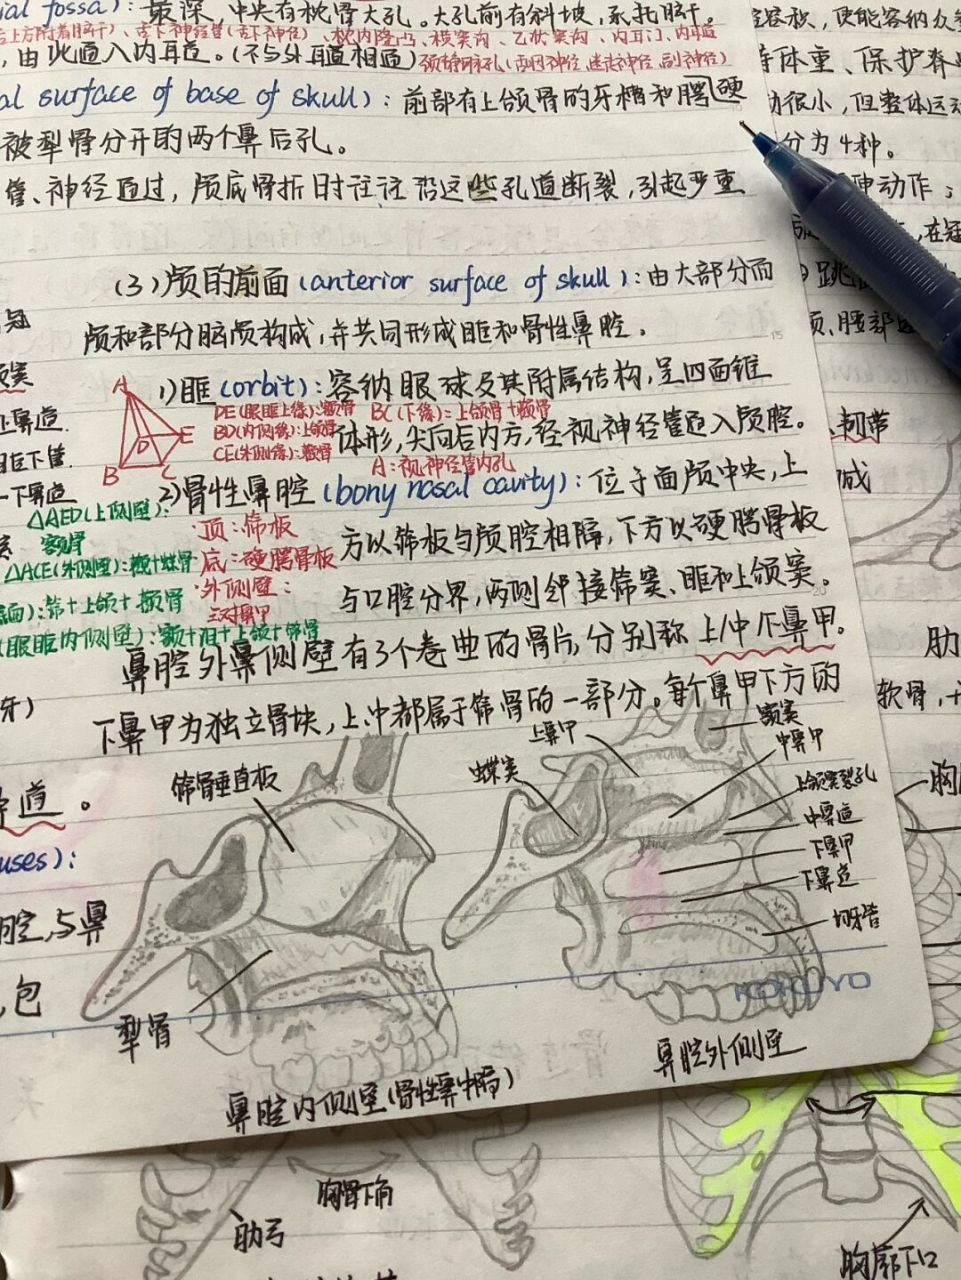 ial fossa): 最深，中央有枕骨大孔。大孔前有斜坡，承托脑干。
，由此通入内耳道。(不与外耳道相通)
颈静脉孔(舌咽神经 迷走神经 副神经)
al surface of base of skull): 前部有上颌骨的牙槽和腭硬
被犁骨分开的两个鼻后孔。
管、神经通过，颅底骨折时往往沿这些孔道断裂，引起严重
(3) 颅的前面 (anterior surface of skull): 由大部分面
颅和部分脑颅构成，并共同形成眶和骨性鼻腔。
1) 眶 (orbit): 容纳眼球及其附属结构，呈四面锥
DE(眼眶上缘): 额骨 BC(下缘): 上颌骨+颧骨
BD(内侧缘): 上颌骨
体形，尖向后内方，经视神经管通入颅腔。
CE(外侧缘): 颧骨
A: 视神经管内孔
A
D
E
B
C
2) 骨性鼻腔 (bony nasal cavity): 位于面颅中央，上
方以筛板与颅腔相隔，下方以硬腭骨板
与口腔分界，两侧邻接筛窦、眶和上颌窦。
·顶: 筛板
·底: 硬腭骨板
·外侧壁:
三对鼻甲
△AED(上侧壁):
额骨
△ACE(外侧壁): 颧+蝶骨
面): 筛+上颌+颧骨
(眼眶内侧壁): 额+泪+上颌+筛骨
鼻腔外鼻侧壁有3个卷曲的骨片，分别称上/中/下鼻甲。
下鼻甲为独立骨块，上中都属于筛骨的一部分。每个鼻甲下方的
筛骨垂直板
犁骨
鼻腔内侧壁(骨性鼻中隔)
上鼻甲
蝶窦
额窦
中鼻甲
上颌窦裂孔
中鼻道
下鼻甲
下鼻道
切牙管
鼻腔外侧壁
KOKUYO
道。
uses):
腔，与鼻
，包
牙)
上鼻道.
一下鼻道
容积，使能容纳众
体重、保护脊
很小，但整体运动
分为4种。
动作；
，在冠
跳
、腰部
韧带
减
肋
软骨，
胸
关
胸骨下角
肋弓
胸廓下口